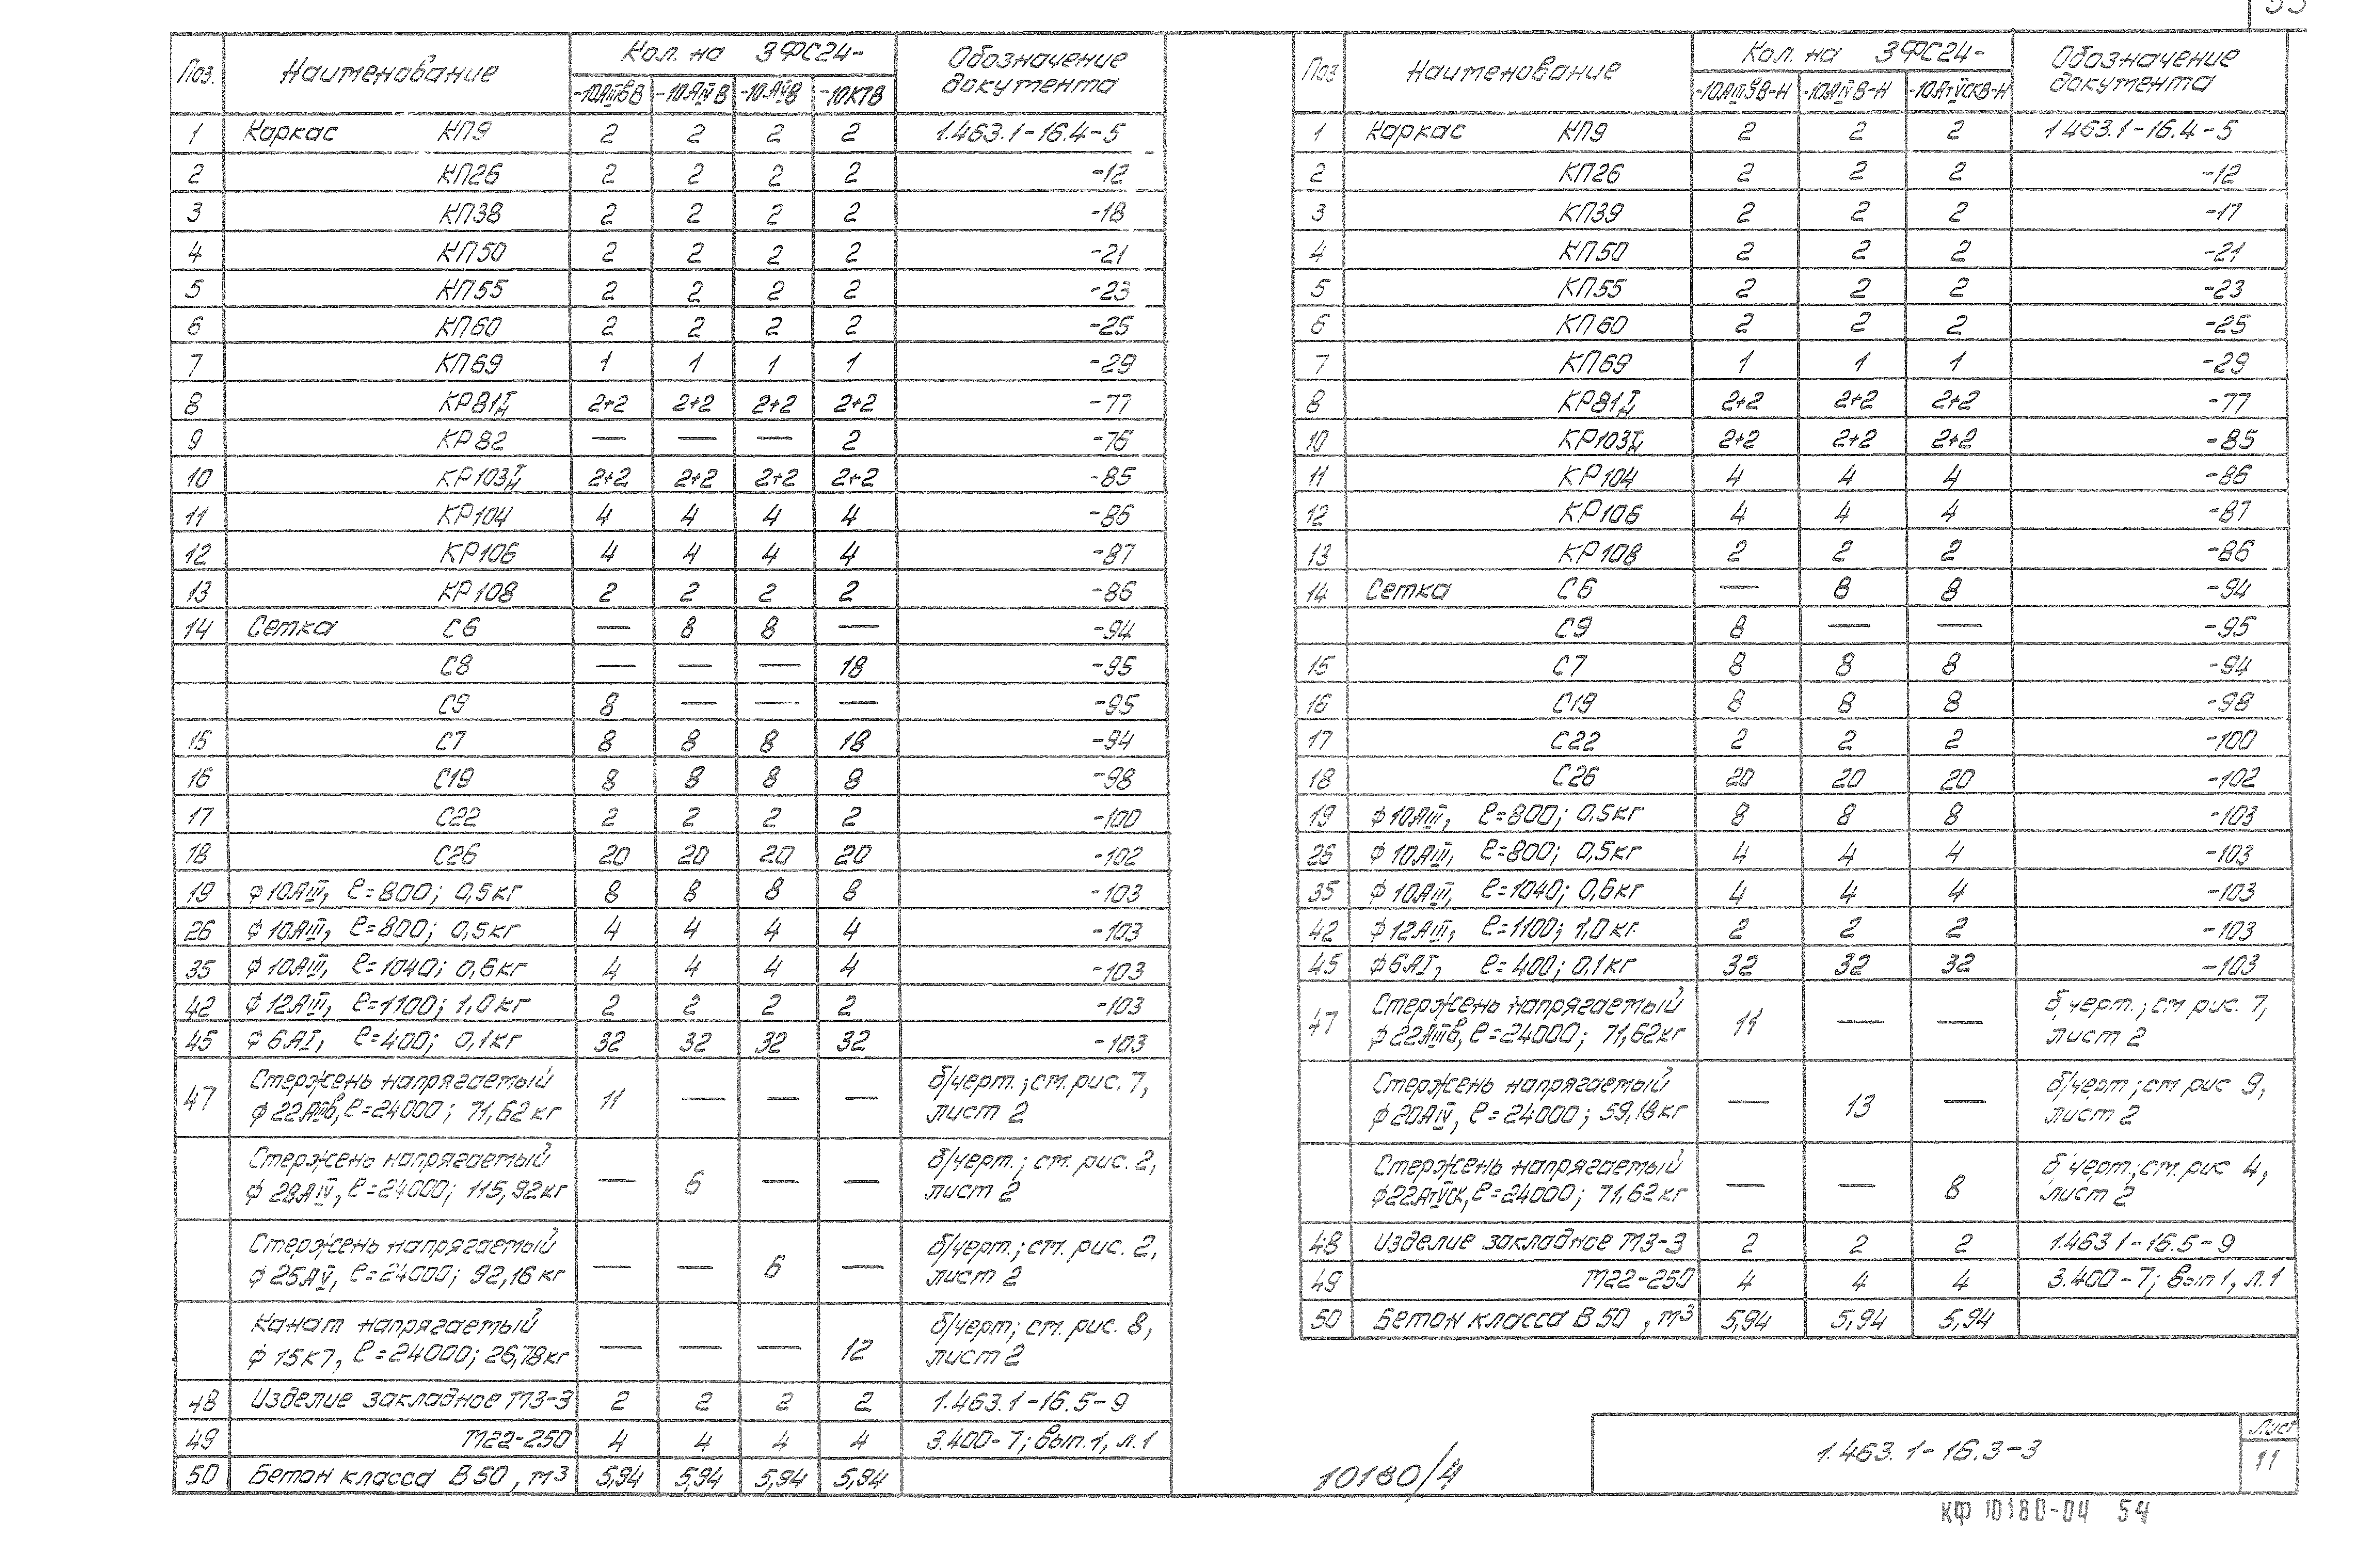 Поз. Наименование Кол. на 3ФС24- Обозначение документа
-10АIIIвВ -10АIVВ -10.АVВ -10К7В
1 Каркас КП9 2 2 2 2 1.463.1-16.4-5
2 КП26 2 2 2 2 -12
3 КП38 2 2 2 2 -18
4 КП50 2 2 2 2 -21
5 КП55 2 2 2 2 -23
6 КП60 2 2 2 2 -25
7 КП69 1 1 1 1 -29
8 КР81Т/Н 2+2 2+2 2+2 2+2 -77
9 КР82 — — — 2 -76
10 КР103Т/Н 2+2 2+2 2+2 2+2 -85
11 КР104 4 4 4 4 -86
12 КР106 4 4 4 4 -87
13 КР108 2 2 2 2 -86
14 Сетка С6 — 8 8 — -94
С8 — — — 18 -95
С9 8 — — — -95
15 С7 8 8 8 18 -94
16 С19 8 8 8 8 -98
17 С22 2 2 2 2 -100
18 С26 20 20 20 20 -102
19 ф10АIII, ℓ=800; 0,5кг 8 8 8 8 -103
26 ф10АIII, ℓ=800; 0,5кг 4 4 4 4 -103
35 ф10АIII, ℓ=1040; 0,6кг 4 4 4 4 -103
42 ф12АIII, ℓ=1100; 1,0кг 2 2 2 2 -103
45 ф6АI, ℓ=400; 0,1кг 32 32 32 32 -103
47 Стержень напрягаемый
ф22АIIIв, ℓ=24000; 71,62кг 11 — — — б/черт.; см. рис. 7,
лист 2
Стержень напрягаемый
ф28АIV, ℓ=24000; 115,92кг — 6 — — б/черт.; см. рис. 2,
лист 2
Стержень напрягаемый
ф25АV, ℓ=24000; 92,16кг — — 6 — б/черт.; см. рис. 2,
лист 2
Канат напрягаемый
ф15К7, ℓ=24000; 26,78кг — — — 12 б/черт; см. рис. 8,
лист 2
48 Изделие закладное М3-3 2 2 2 2 1.463.1-16.5-9
49 М22-250 4 4 4 4 3.400-7; вып.1, л.1
50 Бетон класса В50, м3 5,94 5,94 5,94 5,94
Поз Наименование Кол. на 3ФС24- Обозначение документа
-10АIIIвВ-Н -10АIVВ-Н -10АтVСКВ-Н
1 Каркас КП9 2 2 2 1463.1-16.4-5
2 КП26 2 2 2 -12
3 КП39 2 2 2 -17
4 КП50 2 2 2 -21
5 КП55 2 2 2 -23
6 КП60 2 2 2 -25
7 КП69 1 1 1 -29
8 КР81Т/Н 2+2 2+2 2+2 -77
10 КР103Т/Н 2+2 2+2 2+2 -85
11 КР104 4 4 4 -86
12 КР106 4 4 4 -87
13 КР108 2 2 2 -86
14 Сетка С6 — 8 8 -94
С9 8 — — -95
15 С7 8 8 8 -94
16 С19 8 8 8 -98
17 С22 2 2 2 -100
18 С26 20 20 20 -102
19 ф10АIII, ℓ=800; 0.5кг 8 8 8 -103
26 ф10АIII, ℓ=800; 0,5кг 4 4 4 -103
35 ф10АIII, ℓ=1040; 0,6кг 4 4 4 -103
42 ф12АIII, ℓ=1100; 1,0кг. 2 2 2 -103
45 ф6АI, ℓ=400; 0,1кг 32 32 32 -103
47 Стержень напрягаемый
ф22АIIIв, ℓ=24000; 71,62кг 11 — — б/черт.; см рис. 7,
лист 2
Стержень напрягаемый
ф20АIV, ℓ=24000; 59,18кг — 13 — б/черт; см рис 9,
лист 2
Стержень напрягаемый
ф22АтVСК, ℓ=24000; 71,62кг — — 8 б/черт.; см. рис 4,
лист 2
48 Изделие закладное М3-3 2 2 2 1.463 1-16.5-9
49 М22-250 4 4 4 3.400-7; вып 1, л.1
50 Бетон класса В50, м3 5,94 5,94 5,94
10180/4
1.463.1-16.3-3
Лист
11
КФ 10180-04 54